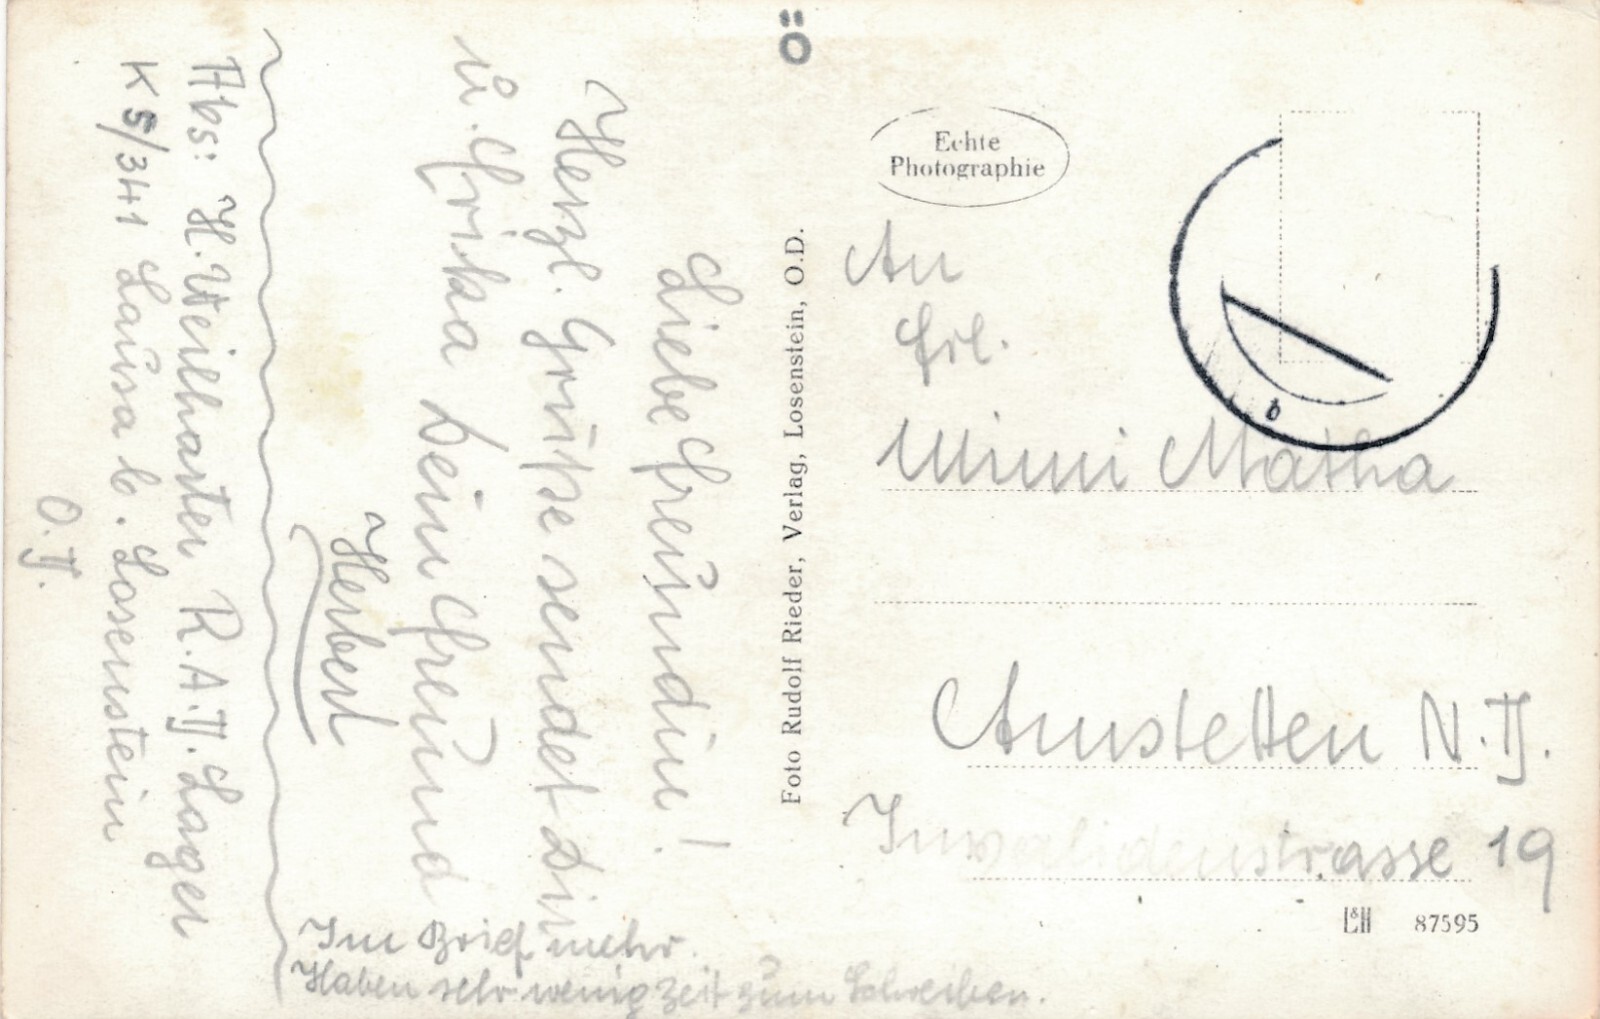 ö
Liebe Freundin!
Herzl. Grüße sendet Dir
u. Erika Dein Freund
Herbert
Im Brief mehr.
Haben sehr wenig Zeit zum Schreiben.
Abs: H. Weilharter R.A.D. Lager
K 5/341 Laussa b. Losenstein
O.D.
Foto Rudolf Rieder, Verlag, Losenstein, O.D.
Echte
Photographie
b
An
Frl.
Mimi Matha
Amstetten N.D.
Invalidenstrasse 19
L&H 87595